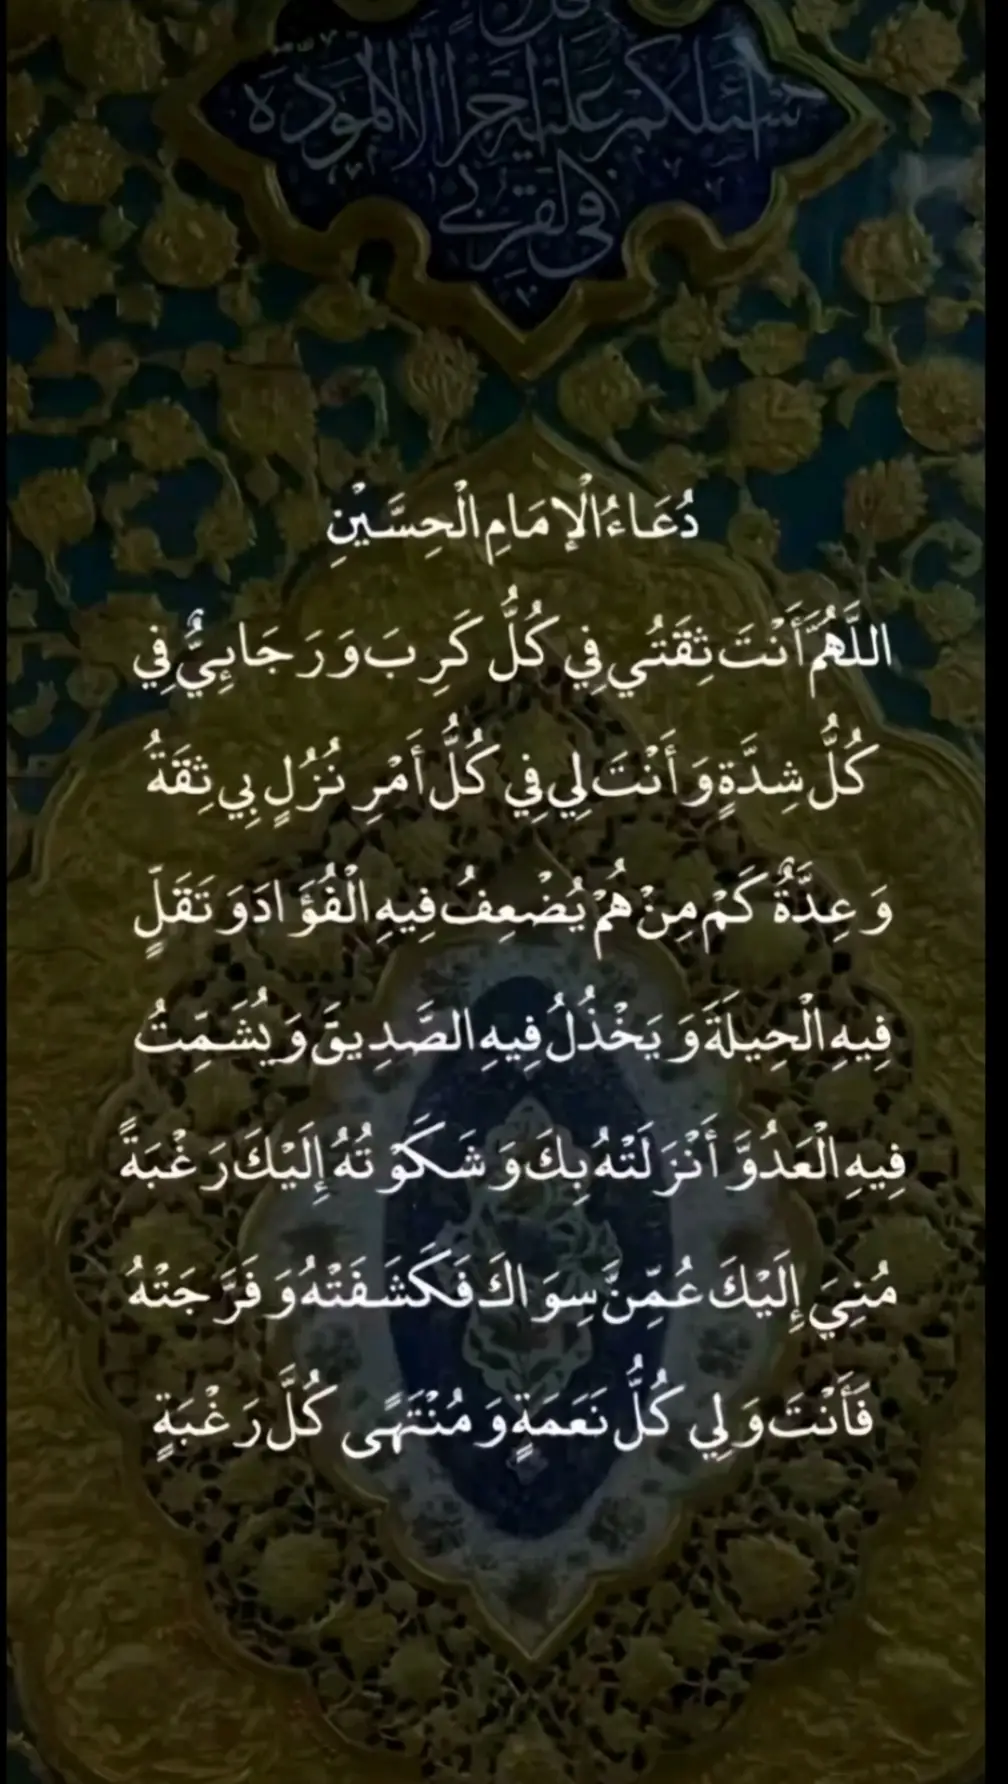 سئلکم علیه اجرا الا المودة
فی القربی
دُعَاءُ الْإِمَامِ الْحِسَّيْنِ
اللَّهُمَّ أَنْتَ ثِقَتُي فِي كُلُّ كَرِبَ وَرَجَائِيٌّ فِي
كُلُّ شِدَّةٍ وَأَنْتَ لِي فِي كُلُّ أَمْرِ نُزُلٍ بِي ثِقَةُ
وَعِدَّةٌ كَمْ مِنْ هُمْ يُضْعِفُ فِيهِ الْفُؤَادَ وَتَقَلٍّ
فِيهِ الْحِيلَةَ وَيَخْذُلُ فِيهِ الصَّدِيقَ وَيُشَمِّتُ
فِيهِ الْعَدُوَّ أَنْزَلَتْهُ بِكَ وَشَكَوْتُهُ إِلَيْكَ رَغْبَةً
مُنِيَ إِلَيْكَ عُمِّنَّ سِوَاكَ فَكَشَفَتْهُ وَفَرَّجَتْهُ
فَأَنْتَ وَلِي كُلُّ نَعَمَةٍ وَمُنْتَهًى كُلَّ رَغْبَةٍ